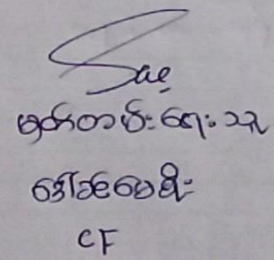 Sae
မှတ်တမ်းရေးသူ
ဒေါ်စမေစိုး
CF